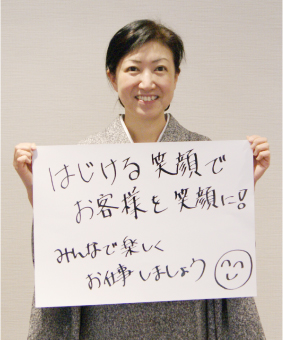 はじける笑顔で
お客様を笑顔に!
みんなで楽しく
お仕事しましょう